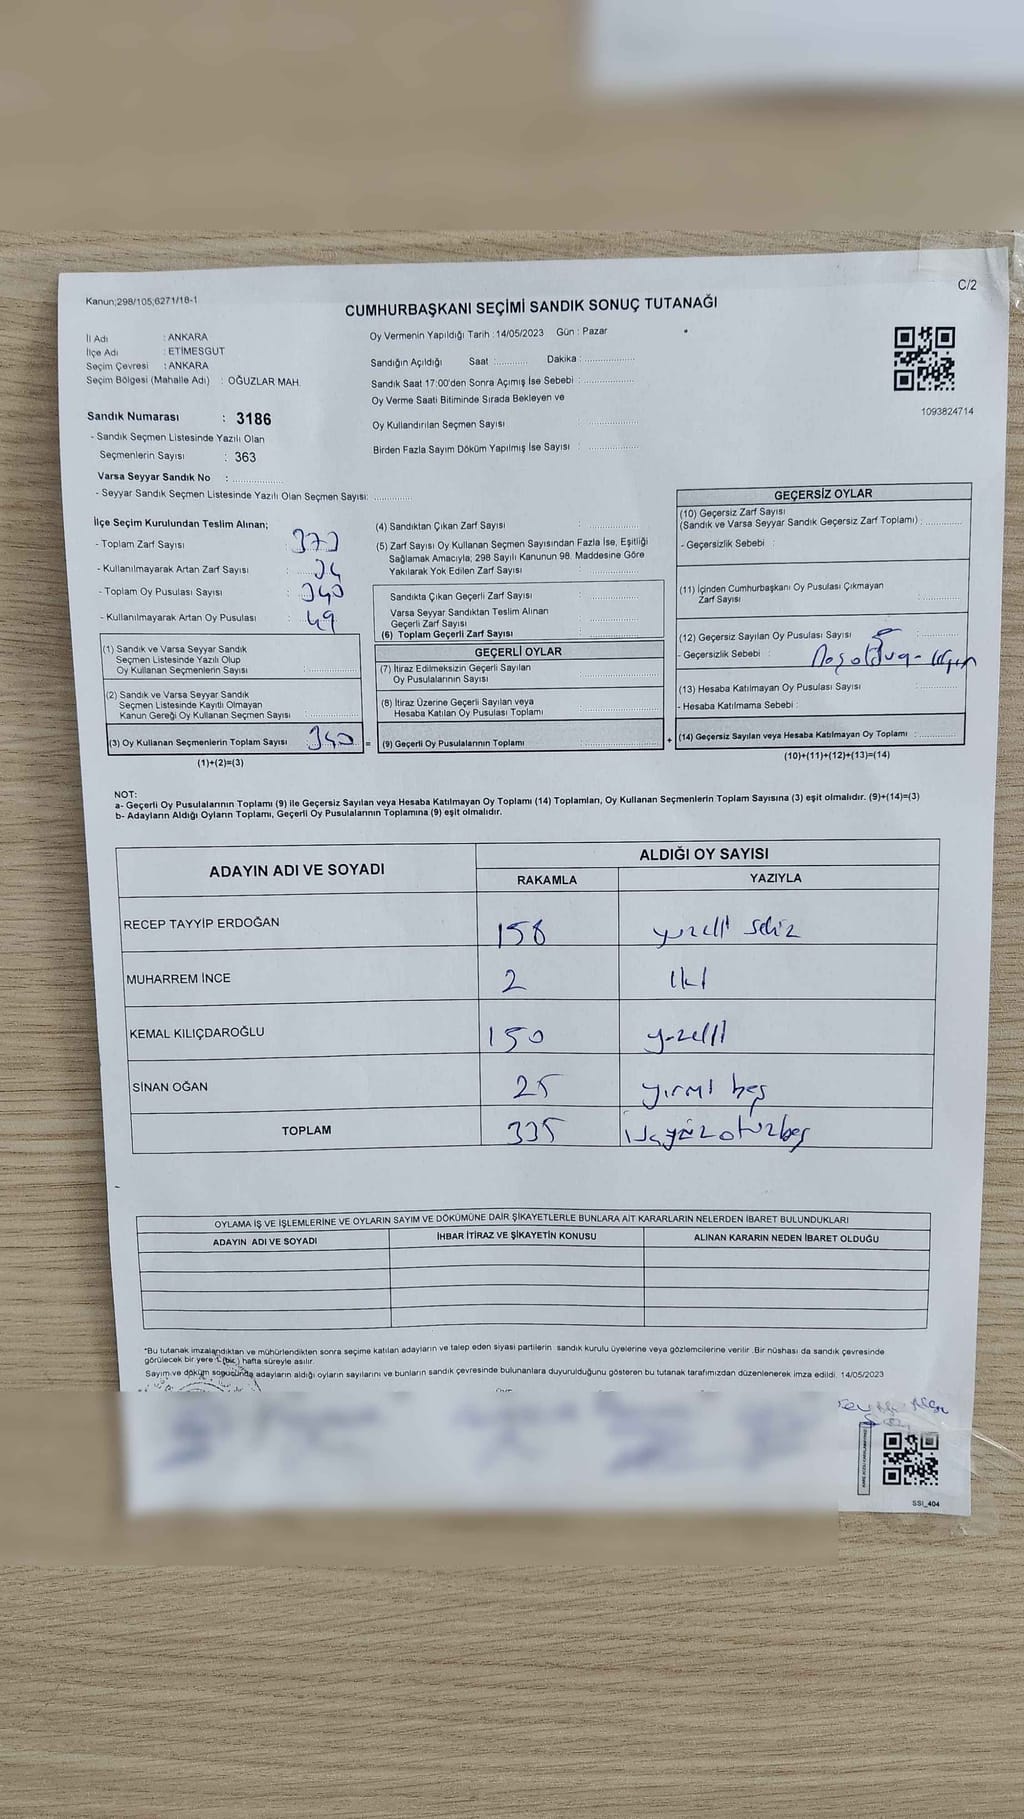 C/2
Kanun;298/105,6271/18-1
CUMHURBAŞKANI SEÇİMİ SANDIK SONUÇ TUTANAĞI
İl Adı : ANKARA
İlçe Adı : ETİMESGUT
Seçim Çevresi : ANKARA
Seçim Bölgesi (Mahalle Adı) : OĞUZLAR MAH.
Oy Vermenin Yapıldığı Tarih : 14/05/2023 Gün : Pazar
Sandığın Açıldığı Saat :........... Dakika :..................
Sandık Saat 17:00'den Sonra Açımış İse Sebebi :..................
Oy Verme Saati Bitiminde Sırada Bekleyen ve
Oy Kullandırılan Seçmen Sayısı :..................
Birden Fazla Sayım Döküm Yapılmış İse Sayısı :..................
1093824714
Sandık Numarası : 3186
- Sandık Seçmen Listesinde Yazılı Olan
Seçmenlerin Sayısı : 363
Varsa Seyyar Sandık No :..................
- Seyyar Sandık Seçmen Listesinde Yazılı Olan Seçmen Sayısı: .............
İlçe Seçim Kurulundan Teslim Alınan;
- Toplam Zarf Sayısı : 373
- Kullanılmayarak Artan Zarf Sayısı :
- Toplam Oy Pusulası Sayısı :
- Kullanılmayarak Artan Oy Pusulası : 49
(1) Sandık ve Varsa Seyyar Sandık
Seçmen Listesinde Yazılı Olup
Oy Kullanan Seçmenlerin Sayısı :..................
(2) Sandık ve Varsa Seyyar Sandık
Seçmen Listesinde Kayıtlı Olmayan
Kanun Gereği Oy Kullanan Seçmen Sayısı :..................
(3) Oy Kullanan Seçmenlerin Toplam Sayısı 340 =
(1)+(2)=(3)
(4) Sandıktan Çıkan Zarf Sayısı :..................
(5) Zarf Sayısı Oy Kullanan Seçmen Sayısından Fazla İse, Eşitliği
Sağlamak Amacıyla; 298 Sayılı Kanunun 98. Maddesine Göre
Yakılarak Yok Edilen Zarf Sayısı :..................
Sandıkta Çıkan Geçerli Zarf Sayısı :..................
Varsa Seyyar Sandıktan Teslim Alınan
Geçerli Zarf Sayısı :..................
(6) Toplam Geçerli Zarf Sayısı :..................
GEÇERLİ OYLAR
(7) İtiraz Edilmeksizin Geçerli Sayılan
Oy Pusulalarının Sayısı :..................
(8) İtiraz Üzerine Geçerli Sayılan veya
Hesaba Katılan Oy Pusulası Toplamı :..................
(9) Geçerli Oy Pusulalarının Toplamı :.................. +
GEÇERSİZ OYLAR
(10) Geçersiz Zarf Sayısı
(Sandık ve Varsa Seyyar Sandık Geçersiz Zarf Toplamı) :...........
- Geçersizlik Sebebi :
(11) İçinden Cumhurbaşkanı Oy Pusulası Çıkmayan
Zarf Sayısı :...........
(12) Geçersiz Sayılan Oy Pusulası Sayısı : 5
- Geçersizlik Sebebi :
(13) Hesaba Katılmayan Oy Pusulası Sayısı :...........
- Hesaba Katılmama Sebebi :
(14) Geçersiz Sayılan veya Hesaba Katılmayan Oy Toplamı :...........
(10)+(11)+(12)+(13)=(14)
NOT:
a- Geçerli Oy Pusulalarının Toplamı (9) ile Geçersiz Sayılan veya Hesaba Katılmayan Oy Toplamı (14) Toplamları, Oy Kullanan Seçmenlerin Toplam Sayısına (3) eşit olmalıdır. (9)+(14)=(3)
b- Adayların Aldığı Oyların Toplamı, Geçerli Oy Pusulalarının Toplamına (9) eşit olmalıdır.
ADAYIN ADI VE SOYADI ALDIĞI OY SAYISI
RAKAMLA YAZIYLA
RECEP TAYYİP ERDOĞAN 158 yüzelli sekiz
MUHARREM İNCE 2 iki
KEMAL KILIÇDAROĞLU 150 yüzelli
SİNAN OĞAN 25 yirmi beş
TOPLAM 335 üçyüzotuzbeş
OYLAMA İŞ VE İŞLEMLERİNE VE OYLARIN SAYIM VE DÖKÜMÜNE DAİR ŞİKAYETLERLE BUNLARA AİT KARARLARIN NELERDEN İBARET BULUNDUKLARI
ADAYIN ADI VE SOYADI İHBAR İTİRAZ VE ŞİKAYETİN KONUSU ALINAN KARARIN NEDEN İBARET OLDUĞU
*Bu tutanak imzalandıktan ve mühürlendikten sonra seçime katılan adayların ve talep eden siyasi partilerin sandık kurulu üyelerine veya gözlemcilerine verilir .Bir nüshası da sandık çevresinde
görülecek bir yere 1 (bir) hafta süreyle asılır.
Sayım ve döküm sonucunda adayların aldığı oyların sayılarını ve bunların sandık çevresinde bulunanlara duyurulduğunu gösteren bu tutanak tarafımızdan düzenlenerek imza edildi. 14/05/2023
SSI_404